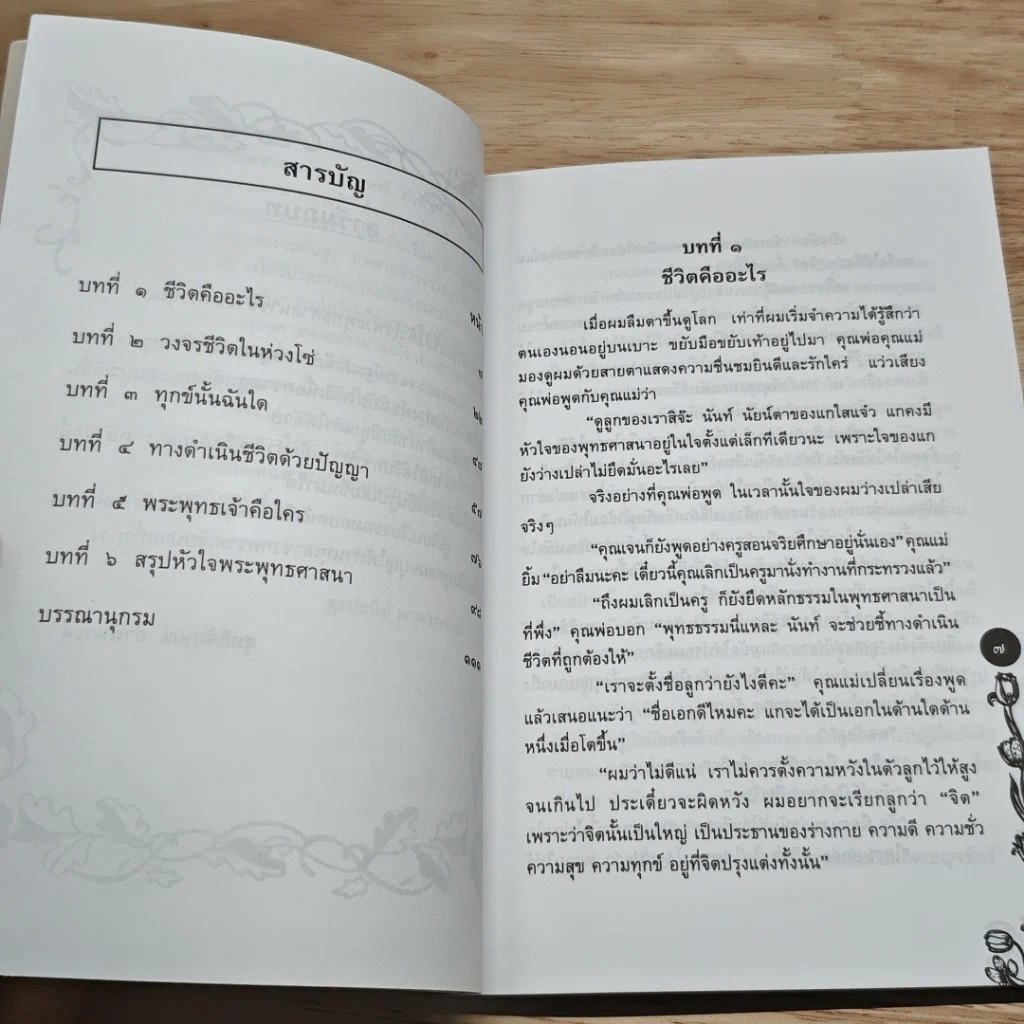 สารบัญ
หน้า
บทที่ ๑ ชีวิตคืออะไร ๗
บทที่ ๒ วงจรชีวิตในห่วงโซ่ ๒๖
บทที่ ๓ ทุกข์นั้นฉันใด ๔๗
บทที่ ๔ ทางดำเนินชีวิตด้วยปัญญา ๕๗
บทที่ ๕ พระพุทธเจ้าคือใคร ๗๖
บทที่ ๖ สรุปหัวใจพระพุทธศาสนา ๙๘
บรรณานุกรม ๑๑๑
บทที่ ๑
ชีวิตคืออะไร
เมื่อผมลืมตาขึ้นดูโลก เท่าที่ผมเริ่มจำความได้รู้สึกว่า
ตนเองนอนอยู่บนเบาะ ขยับมือขยับเท้าอยู่ไปมา คุณพ่อคุณแม่
มองดูผมด้วยสายตาแสดงความชื่นชมยินดีและรักใคร่ แว่วเสียง
คุณพ่อพูดกับคุณแม่ว่า
“ดูลูกของเราสิจ๊ะ นันท์ นัยน์ตาของแกใสแจ๋ว แกคงมี
หัวใจของพุทธศาสนาอยู่ในใจตั้งแต่เล็กทีเดียวนะ เพราะใจของแก
ยังว่างเปล่าไม่ยึดมั่นอะไรเลย”
จริงอย่างที่คุณพ่อพูด ในเวลานั้นใจของผมว่างเปล่าเสีย
จริงๆ
“คุณเจนก็ยังพูดอย่างครูสอนจริยศึกษาอยู่นั่นเอง” คุณแม่
ยิ้ม “อย่าลืมนะคะ เดี๋ยวนี้คุณเลิกเป็นครูมานั่งทำงานที่กระทรวงแล้ว”
“ถึงผมเลิกเป็นครู ก็ยังยึดหลักธรรมในพุทธศาสนาเป็น
ที่พึ่ง” คุณพ่อบอก “พุทธธรรมนี่แหละ นันท์ จะช่วยชี้ทางดำเนิน
ชีวิตที่ถูกต้องให้”
๗
“เราจะตั้งชื่อลูกว่ายังไงดีคะ” คุณแม่เปลี่ยนเรื่องพูด
แล้วเสนอแนะว่า “ชื่อเอกดีไหมคะ แกจะได้เป็นเอกในด้านใดด้าน
หนึ่งเมื่อโตขึ้น”
“ผมว่าไม่ดีแน่ เราไม่ควรตั้งความหวังในตัวลูกไว้ให้สูง
จนเกินไป ประเดี๋ยวจะผิดหวัง ผมอยากจะเรียกลูกว่า “จิต”
เพราะว่าจิตนั้นเป็นใหญ่ เป็นประธานของร่างกาย ความดี ความชั่ว
ความสุข ความทุกข์ อยู่ที่จิตปรุงแต่งทั้งนั้น”